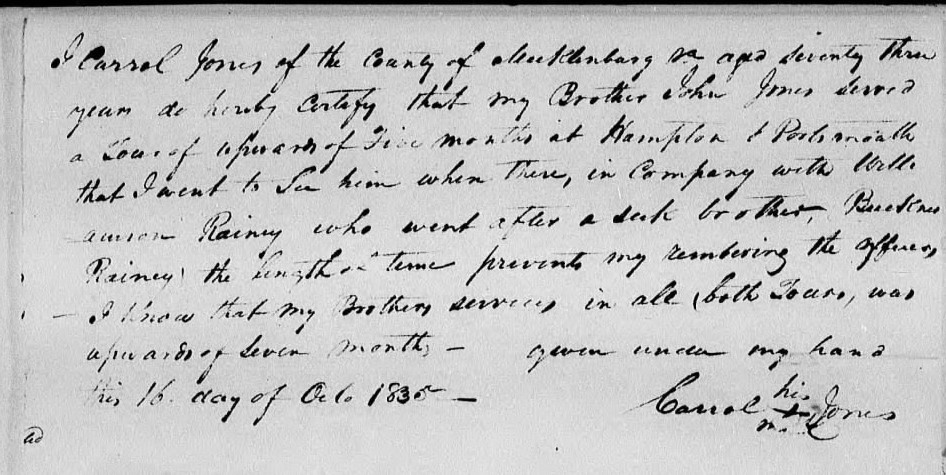 I Carrol Jones of the County of Mecklenburg Va aged seventy three
years do hereby Certify that my Brother John Jones served
a Tour of upwards of Five months at Hampton & Portsmouth
that I went to See him when there, in Company with Willi
amson Rainey who went after a sick brother, Buckner
Rainey the length of time prevents my rembering the officers,
- I know that my Brothers services in all (both Tours, was
upwards of seven months - given under my hand
this 16. day of Octo 1835 -
Carrol his + mark Jones
ad